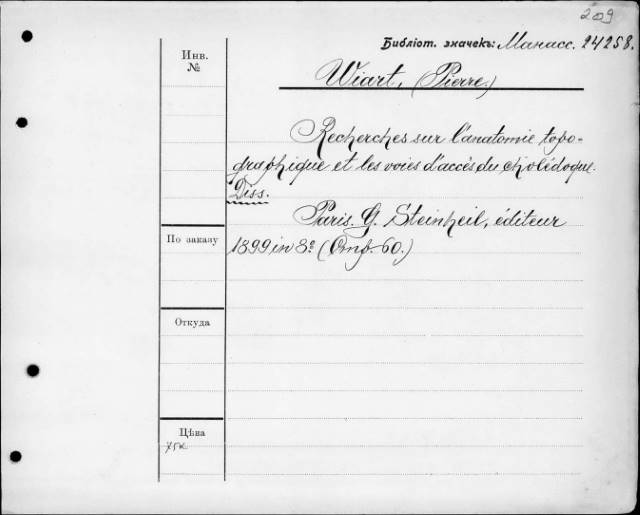 209
Библіот. значекъ: Манасс. 24258.
Инв.
№
Wiart, (Pierre.)
Recherches sur l'anatomie topo-
graphique et les voies d'accès du cholédoque.
Diss.
Paris. G. Steinheil, éditeur
По заказу
1899 in 8º (Отд. 60.)
Откуда
Цѣна